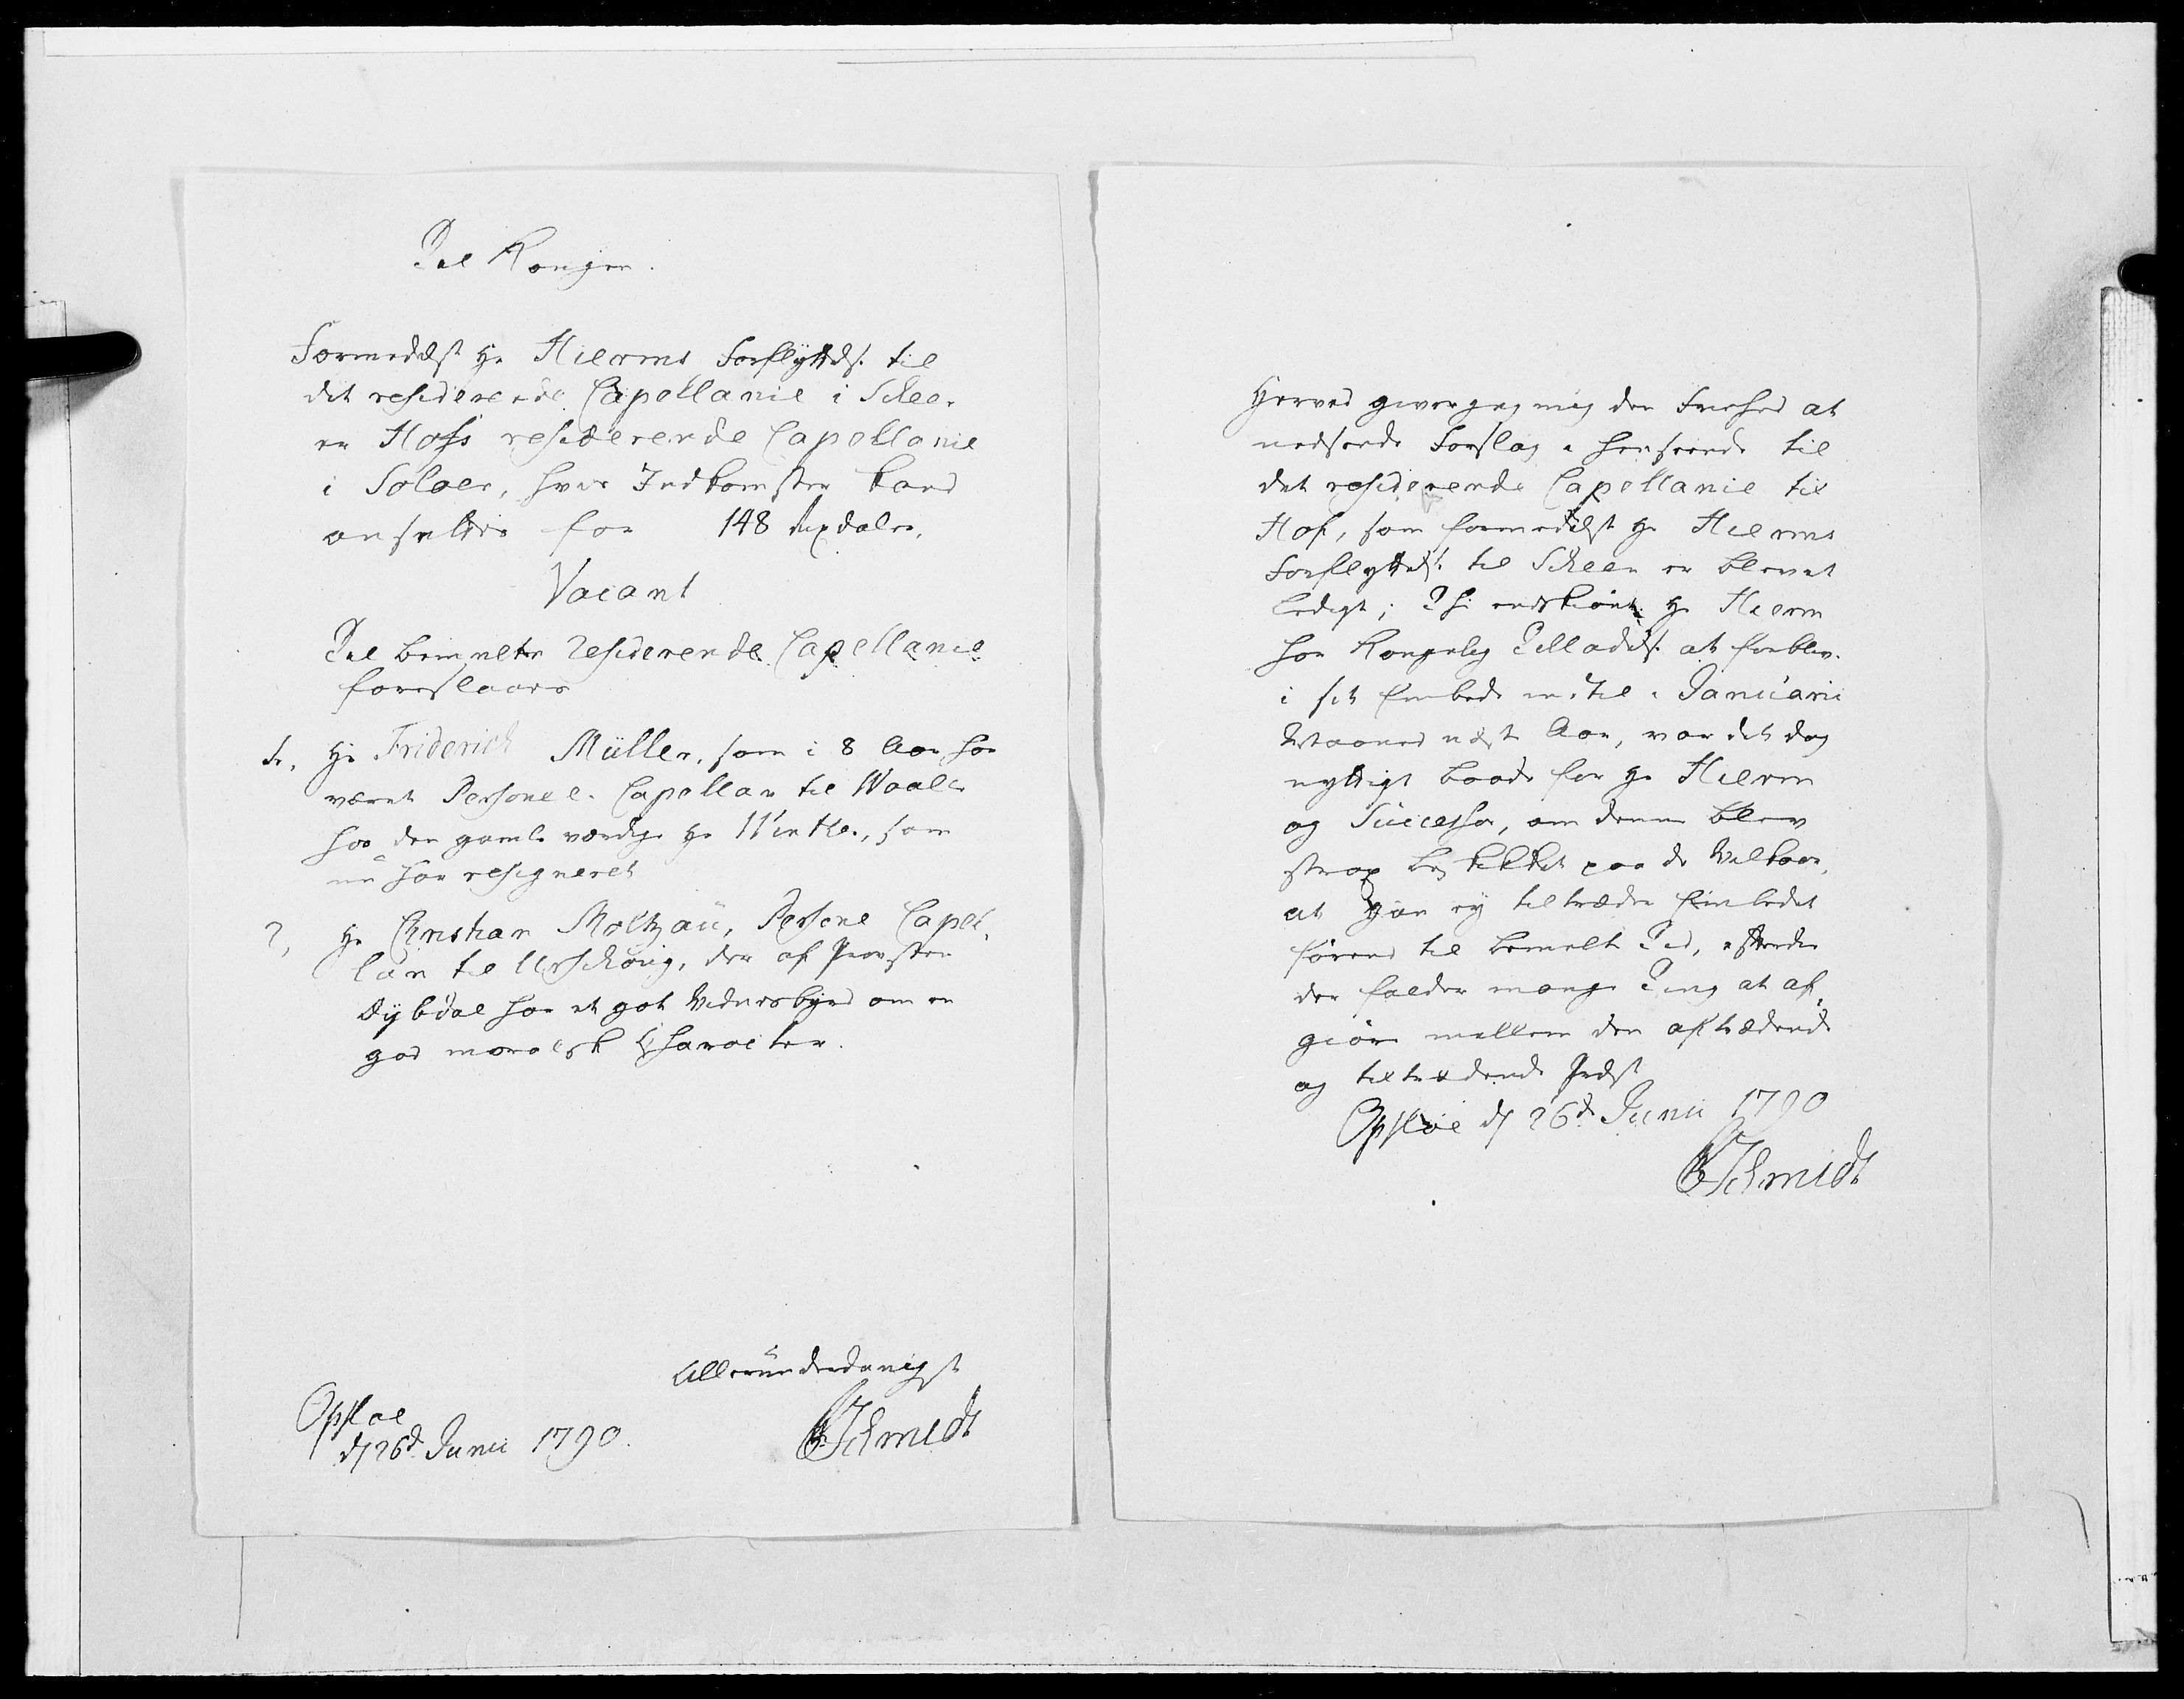 Til Kongen.
Formedelst Hr Hierms Forflyttelse til
det residerende Capellanie i Skeen
er Hofs residerende Capellanie
i Soloer, hvis Indkomster kand
ansættes for 148 Rixdaler,
Vacant
Til bemelte residerende Capellanie
foreslaaes
1, Hr Friderich Müller, som i 8 Aar har
været Personel Capellan til Waaler
hos den gamle værdige Hr Winther, som
nu har resigneret
2, Hr Christian Moltzau, Persone Capel,
lan til Urschoug, der af Provsten
Dybdal har et got Vidnesbyrd om en
god moralsk Character.
Allerunderdanigst
Opsloe
d 26d Junii 1790.
Schmidt
Herved giver jeg mig den Friehed at
nedsende Forslag i Henseende til
det residerende Capellanie til
Hof, som formedelst Hr Hierms
Forflyttelse til Skeen er blevet
ledigt; Thi endskiønt Hr Hierm
har Kongelig Tilladelse at forblive
i sit Embede indtil Januarii
Maaned næste Aar, var det dog
nyttigt baade for Hr Hierm
og Successor, om denne blev
strax beskikket paa de Vilkaar,
at han ey tiltræder Embedet
førend til bemelte Tid, efterdi
der falder mange Ting at af,
giøre mellem den aftrædende
og tiltrædende Præst
Opsloe d 26d Junii 1790
Schmidt